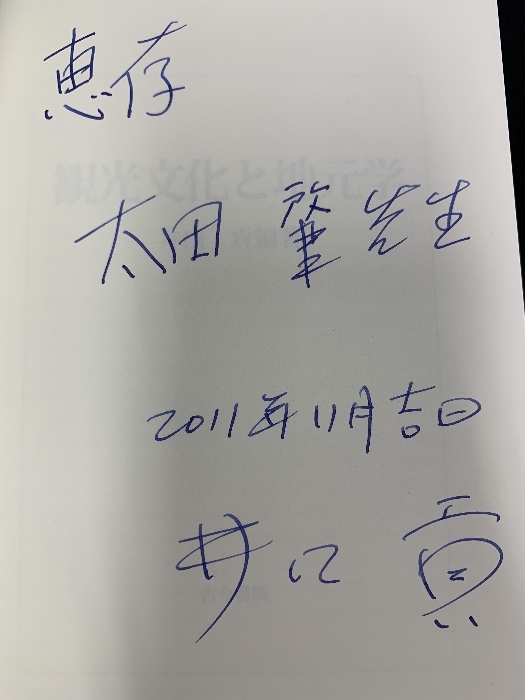 恵存
太田 肇 先生
2011年11月吉日
井口 貢
観光文化と地元学